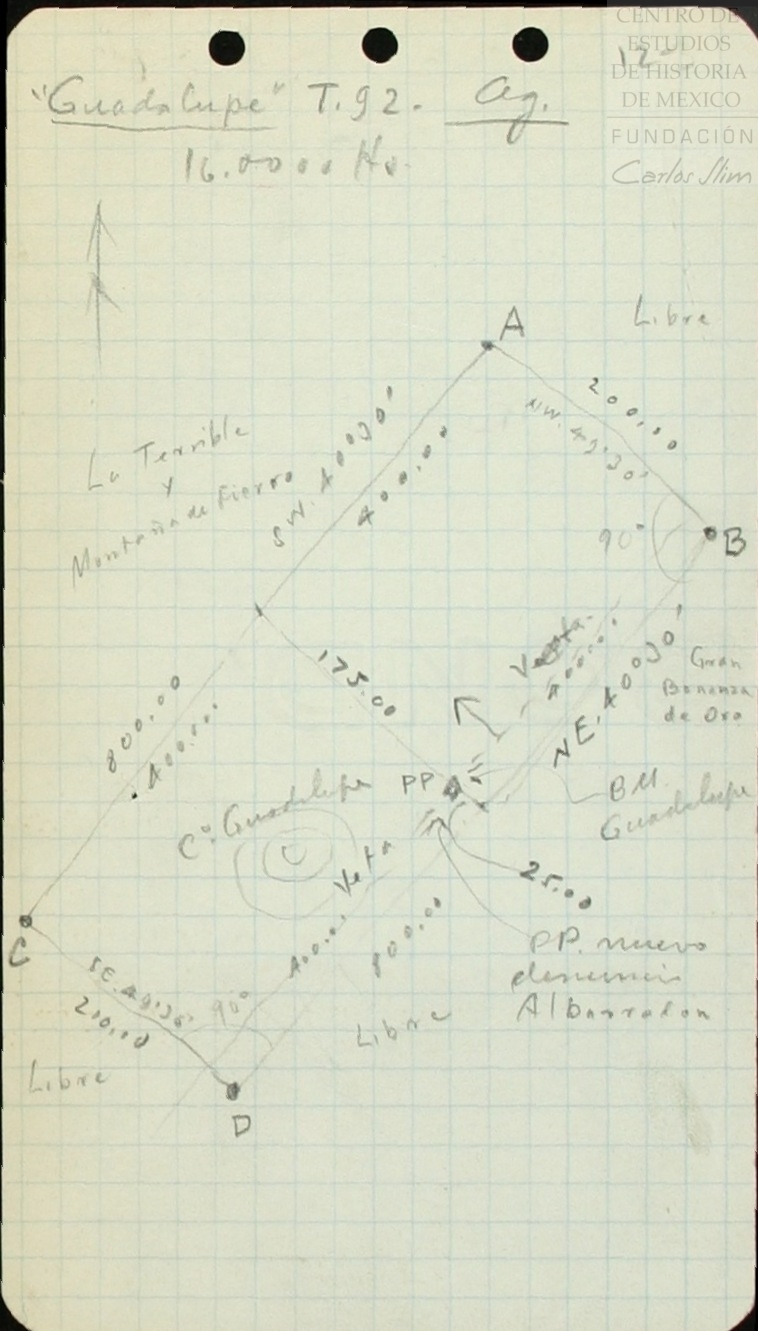 CENTRO DE
ESTUDIOS
DE HISTORIA
DE MEXICO
FUNDACIÓN
Carlos Slim
12
"Guadalupe" T.92. Ag.
16.0000 Hs.
A
Libre
200.00
NW. 49°30'
La Terrible
y
Montaña de Fierro
SW. 40°30'
400.00
90°
B
175.00
Veta
400.00
NE. 40°30'
Gran
Bonanza
de Oro
800.00
400.00
PP
BM
Guadalupe
Co. Guadalupe
Veta
25.00
C
400.00
800.00
PP. nuevo
denuncio
Albarradon
SE. 49°30'
200.00
90°
Libre
Libre
D